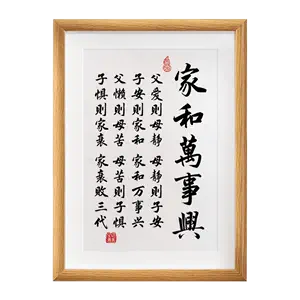 家和萬事興
父爱则母静 母静则子安
子安则家和 家和万事兴
父懒则母苦 母苦则子惧
子惧则家衰 家衰败三代